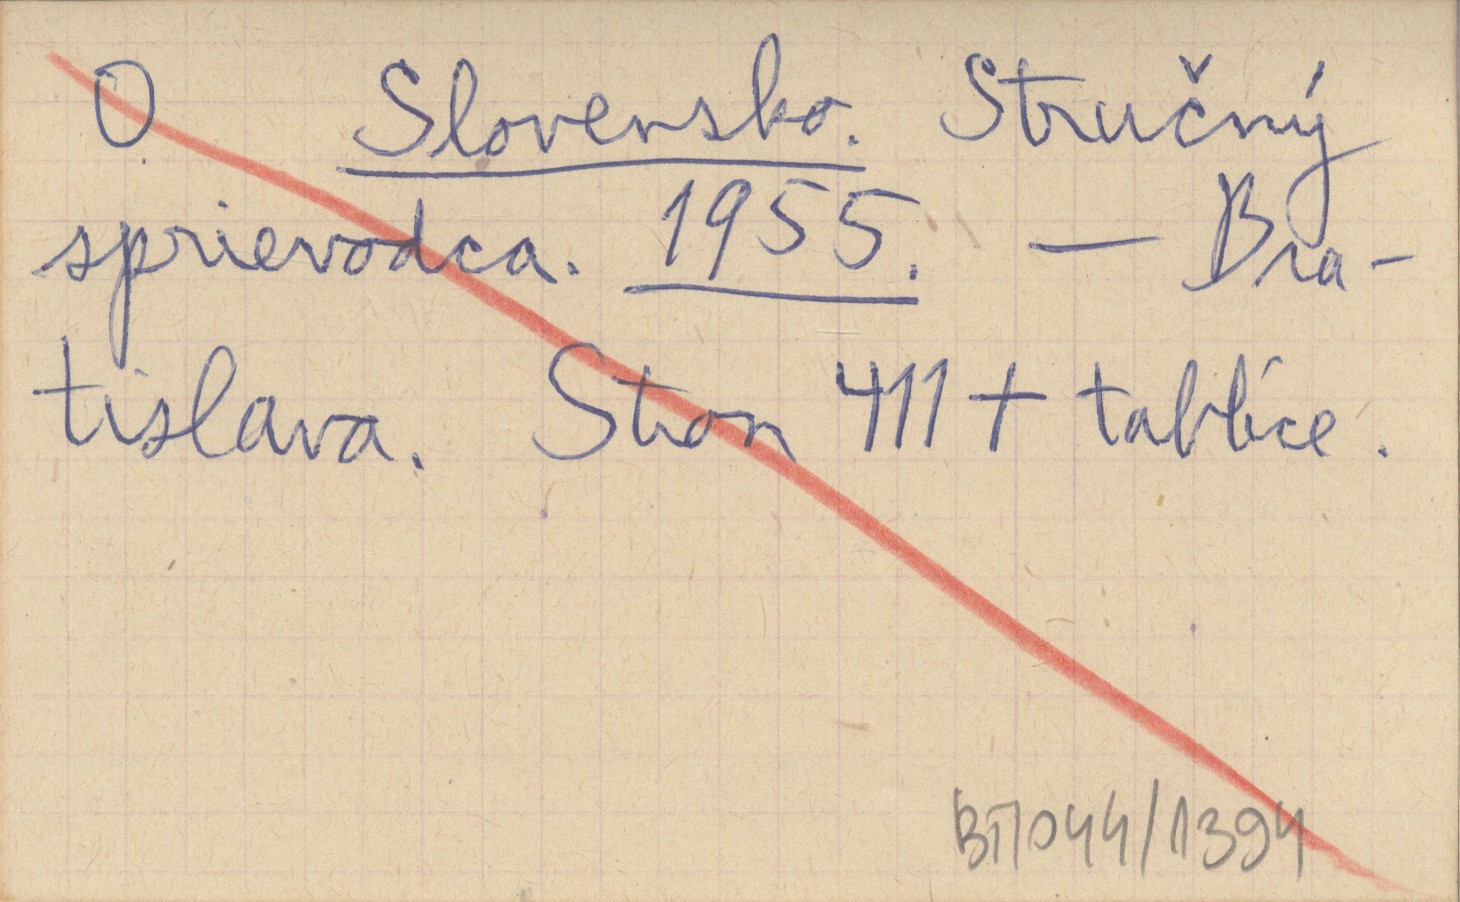 O Slovensko. Stručný
sprievodca. 1955. — Bra-
tislava. Stron 411 + tablice.
BП044/1394